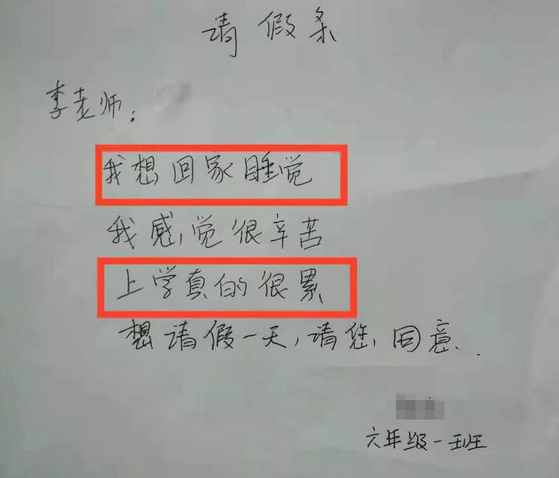 请假条
李老师:
我想回家睡觉
我感,觉很辛苦
上学真的很累
想请假一天,请您,同意..
六年级一班